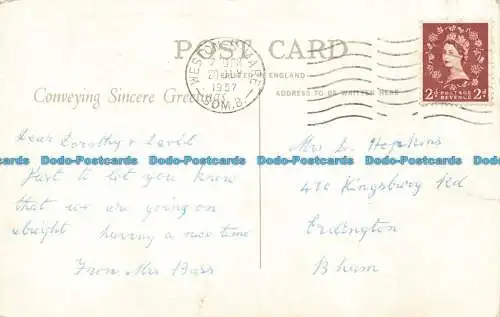 POST CARD
WESTON-S-MARE
20 JUN
1957
SOM.B.
PRINTED IN ENGLAND
ADDRESS TO BE WRITTEN HERE
2d POSTAGE REVENUE 2d
Conveying Sincere Greetings
Dear Dorothy & David
Just to let you know
that we are going on
alright having a nice time
From Mrs Bass
Mrs D. Hopkins
470 Kingsbury Rd
Erdington
B ham
Dodo-Postcards Dodo-Postcards Dodo-Postcards Dodo-Postcards Dodo-Postcards